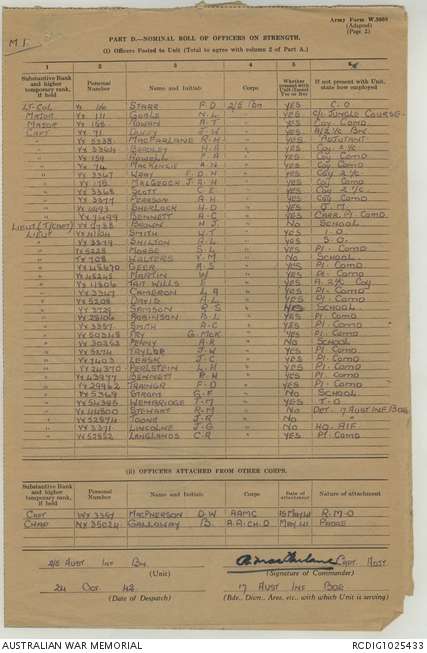 Army Form W.3008
(Adapted)
(Page 2)
M I.
PART D.—NOMINAL ROLL OF OFFICERS ON STRENGTH.
(i) Officers Posted to Unit (Total to agree with column 2 of Part A.)
1 2 3 4 5 6
Substantive Rank and higher temporary rank, if held Personal Number Name and Initials Corps Whether present with Unit (Insert Yes or No) If not present with Unit, state how employed
LT-COL VX 116 STARR P. D 2/5 Bn YES C.O
MAJOR VX 111 GOBLE N. L. " YES O/C JUNGLE COURSE
MAJOR VX 166 ROWAN A. T " YES COY COMD
CAPT VX 71 J. W " YES A/2 I/C BN
" VX 5338 MACFARLANE R. H " YES ADJUTANT
" VX 3364 H. B " YES COY 2 I/C
" VX 159 P A " YES COY COMD
" VX 74 MACKENZIE A. H " YES COY COMD
" VX 3367 WRAY F. D. H " YES COY 2 I/C
" VX 175 J. A. H " YES COY COMD
" VX 3368 SCOTT C. E " YES COY 2 I/C
" VX 3377 PEARSON A. H " YES COY COMD
" SHERLOCK H. D " YES
" VX 7499 BENNETT A-C " YES CARR. PL COMD
LIEUT (T/CAPT) BROWN H J. " NO SCHOOL
LIEUT SMITH W. T " YES I. O
" VX 3379 SHILTON A. L " YES S. O.
" MORSE S. L " YES PL COMD
" VX 708 WALTERS V. M " NO SCHOOL
" VX 45670 GEER A. S " YES PL COMD
" MARTIN W " YES PL COMD
" VX 11306 TAIT WILLS E " YES A. 2 I/C COY
" VX 3347 CAMERON L. A " YES PL COMD
" VX 5208 DAVIS A. L " YES PL COMD
" VX 3725 SAMSON R. S " YES SCHOOL
" VX 25106 ROBINSON B. L " YES PL COMD
" VX 3357 SMITH A. C " YES PL COMD
" FRY G. McK " YES PL COMD
" PENNY A. R " NO SCHOOL
" TAYLOR J. W " YES PL COMD
" VX 7403 LEASK J. C " YES PL COMD
" PERLSTEIN L. H " YES PL COMD
" BENNETT R. H " YES PL COMD
" VX 29962 TRAINOR F-D " YES PL COMD
" VX 5369 G. F " NO SCHOOL
" VX 54385 WEMBRIDGE T-M " YES T-O
" STEWART R-M " NO DET. 17 AUST INF BDE
" TOONE J. R " NO "
" VX 3371 LINCOLNE J. G " NO HQ. AIF
" VX 52552 LANGLANDS C. R " YES PL COMD
(ii) OFFICERS ATTACHED FROM OTHER CORPS.
Substantive Rank and higher temporary rank, if held Personal Number Name and Initials Corps Date of attachment Nature of attachment
CAPT WX 3357 MACPHERSON D. W AAMC 15 MAY 41 R-M-O
CHAP NX 35024 GALLOWAY B. A.A.CH.D MAY 41 PADRE
2/5 AUST INF BN.
(Unit)
R. MacFarlane CAPT ADJT
(Signature of Commander)
24 OCT. 42.
(Date of Despatch)
17 AUST INF BDE
(Bde., Divn., Area, etc., with which Unit is serving)
AUSTRALIAN WAR MEMORIAL RCDIG1025433